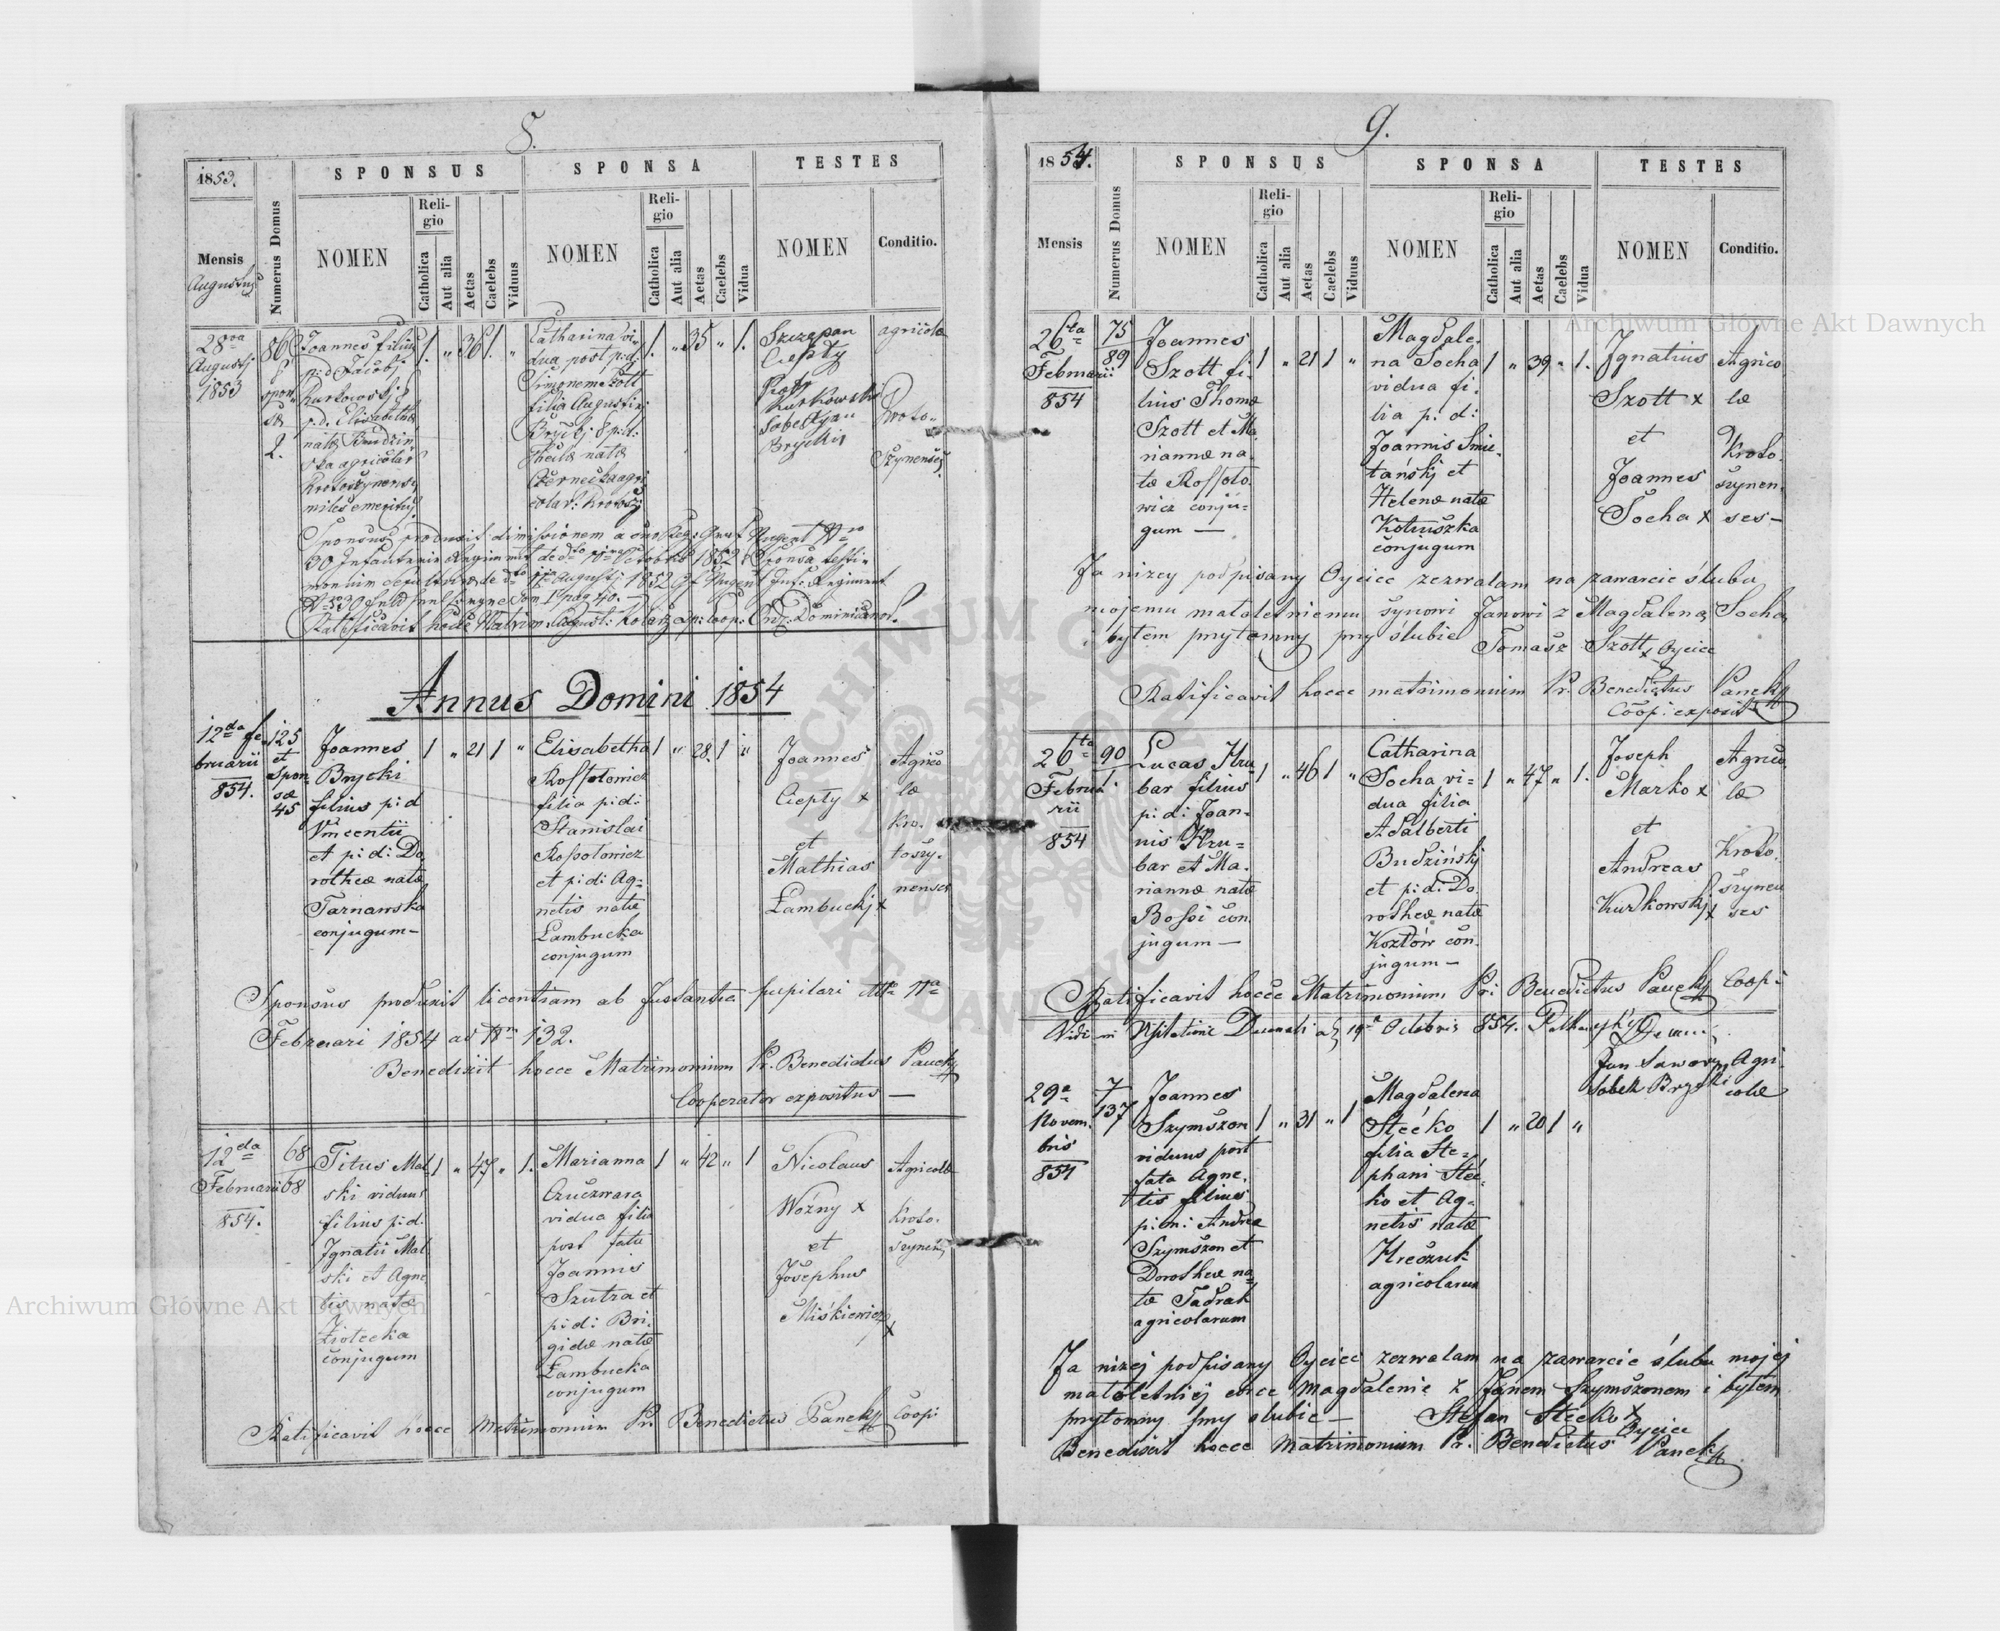 8.
1853.
SPONSUS
SPONSA
TESTES
Mensis
Augustus
Numerus Domus
NOMEN
Religio
Catholica
Aut alia
Aetas
Caelebs
Viduus
NOMEN
Religio
Catholica
Aut alia
Aetas
Caelebs
Vidua
NOMEN
Conditio.
28va
Augustj
1853
86
spon
sæ
2.
Joannes filius
p:d Jacobj
Kurkowskj
p.d. Elisabethæ
natæ Budzin
ska agricolar
Krotoszynensis
miles emeritus
1. " 36 1. "
Catharina vi-
dua post p:d:
Simonem Szott
filia Augustini
Bryckj & p:d:
Theclæ natæ
Czernecka agri
colar: Krotosz
1. " 35 " 1.
Szczepan
Ciepły
Piotr
Kurkowski
Sobestjan
Brycki
agricolæ
Kroto-
szynenses
Sponsus produxit dimissionem a
30 Infanterie Regiment de dto Octobris 1852 Sponsa testi-
monium sepulturæ de dto Augustj 1852 Gf Nugent Inft. Regiment
pag 40.
Ratificavit hocce Matrim: August: Kolarz Coop: Ord: Dominicanor.
Annus Domini 1854
12da fe
bruarii
854.
125
et
spon
sæ
45
Joannes
Brycki
filius p:d
Vincentii
et p:d: Do
rotheæ natæ
Tarnawska
conjugum-
1 " 21 1 "
Elisabetha
Rossołowicz
filia p:d:
Stanislai
Rossołowicz
et p:d: Ag=
netis natæ
Łambucka
conjugum
1 " 28. 1 "
Joannes
Ciepły x
et
Mathias
Łambuckj x
Agrico
læ
Kro-
toszy-
nenses
Sponsus produxit licentiam ab Instantia pupilari dtto 11a
Februari 1854 ad Nm 132.
Benedixit hocce Matrimonium Pr. Benedictus Paneky
Cooperator expositus —
12da
Februarii
854.
68
68
Titus Mal
ski viduus
filius p:d:
Ignatii Mal
ski et Agne
tis natæ
Ziołecka
conjugum
1 " 47 " 1.
Marianna
Czuczwara
vidua filia
post fata
Joannis
Szutra et
p:d: Bri-
gidæ natæ
Łambucka
conjugum
1 " 42 " 1
Nicolaus
Woźny x
et
Josephus
Miśkiewicz
x
Agricolæ
Kroto-
szynens
Ratificavit hocce Matrimonium Pr. Benedictus Paneky Coop:
9.
1854.
SPONSUS
SPONSA
TESTES
Mensis
Numerus Domus
NOMEN
Religio
Catholica
Aut alia
Aetas
Caelebs
Viduus
NOMEN
Religio
Catholica
Aut alia
Aetas
Caelebs
Vidua
NOMEN
Conditio.
26ta
Februarii
854
75
89
Joannes
Szott fi-
lius Thomæ
Szott et Ma
riannæ na-
tæ Rossoło
wicz conju-
gum —
1 " 21 1 "
Magdale-
na Socha
vidua fi-
lia p: d:
Joannis Smie-
tańskj et
Helenæ natæ
Kotuszka
conjugum
1 " 39 " 1.
Ignatius
Szott x
et
Joannes
Socha x
Agrico
læ
Kroto-
szynen-
ses-
Ja nizey podpisany Oyciec zezwalam na zawarcie ślubu
mojemu małoletniemu synowi Janowi z Magdaleną Socha
i byłem przytomny przy ślubie Tomasz Szott x Oyciec
Ratificavit hocce matrimonium Pr. Benedictus Paneky
Coop: exposit
26ta
Februa
rii
854
90
Lucas Hru
bar filius
p: d: Joan-
nis Hru-
bar et Ma-
riannæ natæ
Bossi con
jugum —
1 " 46 1 "
Catharina
Socha vi=
dua filia
Adalberti
Budzińskj
et p:d: Do
rotheæ natæ
Kozłów con-
jugum —
1 " 47 " 1.
Joseph
Marko x
et
Andreas
Kurkowskj x
Agrico
læ
Kroto.
szynen
ses
Ratificavit hocce Matrimonium Pr: Benedictus Paneky Coop:
Vidi in Visitatione Decanali d 19a Octobris 854.
29a
Novem
bris
854
7
137
Joannes
Szymszon
viduus post
fata Agne-
tis filius
p:m: Andreæ
Szymszon et
Dorotheæ na
tæ Sadrak
agricolarum
1 " 31 " 1
Magdalena
Stećko
filia Ste-
phani Steć-
ko et Ag-
netis natæ
Hreszuk
agricolarum
1 " 20 1 "
Jan Saworyn
Sobek Brycki
Agri-
colæ
Ja nizej podpisany Oyciec zezwalam na zawarcie ślubu mojej
małoletniej córce Magdalenie z Janem Szymszonem i byłem
przytomny przy slubie — Stefan Stećko x
Oyciec
Benedixit hocce Matrimonium Pr: Benedictus Paneky
Archiwum Główne Akt Dawnych
Archiwum Główne Akt Dawnych
ARCHIWUM GŁÓWNE AKT DAWNYCH